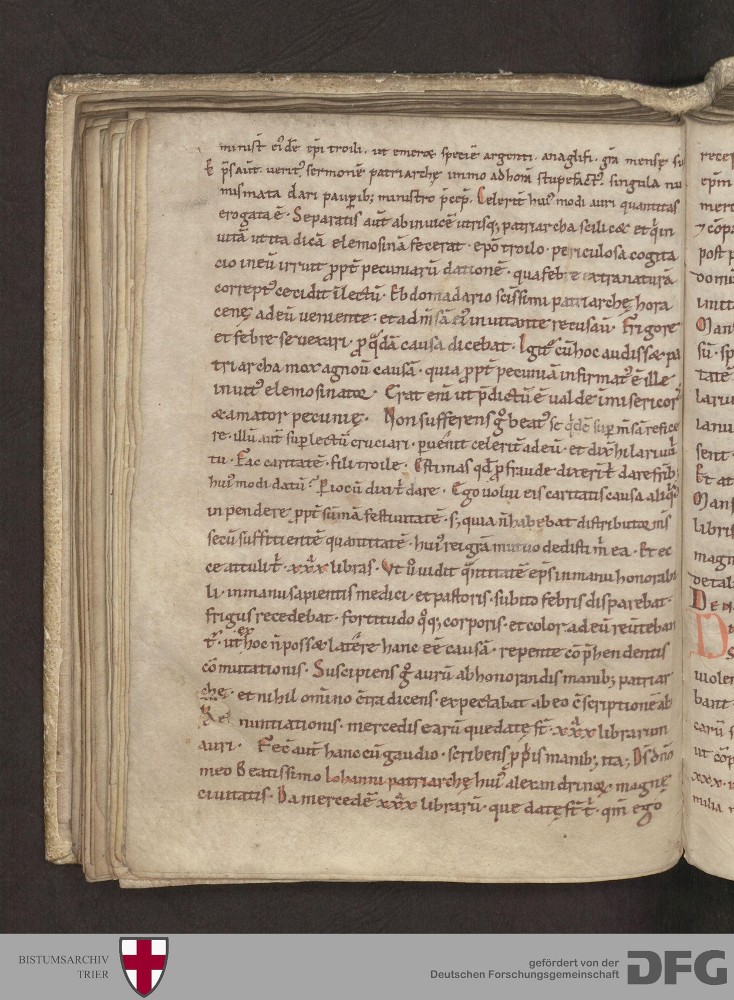 minist̄ ei᷒dē ep̄i troili · ut emeret speciē argenti · anaglifi · gr̄a mensę su
p̄sb̄ · verit᷒ sermonē patriarchę immo ad hoī stupefact᷒ · singula nu
mismata dari pauperib; ministro p̄cep̄ · Celerit̄ hui᷒ modi auri quantitas
erogata ē · Separatis aut̄ ab invicē utrisq;, patriarcha scilicet et qui in
vitā ut ita dicā elemosinā fecerat · ep̄o troilo · periculosa cogita
cio in eū irruit prop̄t pecuniarū dationē · qua febre extra naturā
corrept᷒ cecidit ī lectū · Ebdomadario sc̄issimi patriarchę hora
cenę ad eū veniente · et ad m̄sā ei᷒ invitante recusaū · Frigore
et febre se vexari · p q̄dā causa dicebat · Igit᷒ cū hoc audisset pa
triarcha mox agnoū causā · quia prop̄t pecuniā infirmat᷒ ē ille
invit᷒ elemosinator · Erat eni ut p̄dictū ē valde imisericors
et amator pecunię · Non sufferens g beat᷒ se quidē sup m̄sā refice
re · illū aut̄ sup lectū cruciari · pvenit celerit̄ ad eū · et dix̄ hilari vul
tu · Fac caritatē · fili troile · Estimas qd̄ p fraude dixeri t̄ dare fr̄ib;
hui᷒ modi datū? P iocū dixi t̄ dare · Ego volui eis caritatis causa aliq̄d
inpendere prop̄t sūmā festivitatē · s; quia n̄ habebat distributor m̄s
secū sufficientē quantitatē · hui᷒ rei gr̄a mutuo dedisti m̄ ea · Et ec
ce attuli t̄ · xxx libras · Ut v̄ vidit q̄ntitatē ep̄s in manu honorabi
li · in manu sapientis medici · et pastoris · subito febris disparebat ·
frigus recedebat · fortitudo q̄q; corporis · et color ad eū revteban
t᷒ · ut ex hoc n̄ posset latere hanc eē causā · repente cōp̄hendentis
cōmutationis · Suscipiens g aurū ab honorandis manib; patriar
chę · et nihil om̄ino c̄tra dicens · expectabat ab eo c̄scriptionē ab
Re nuntiationis · mercedis earū que datę st̄ · xxx librarum
auri · Fec̄ aut̄ hanc cū gaudio · scribens pp̄is manib; ita; Ds̄ dn̄o
meo Beatissimo Iohanni patriarchę hui᷒ alexandrinę · magnę
civitatis · Da mercedē xxx librarū · que datę st̄ t̄ · qm̄ ego
recep
ep̄m
merc
post p
domū
unita
Man
tatē
laru
lanu
sent
Et at
Mans
libris
magn
detal
violen
bant
carū s
ut cōp
xxx
milia
BISTUMSARCHIV
TRIER
gefördert von der
Deutschen Forschungsgemeinschaft
DFG